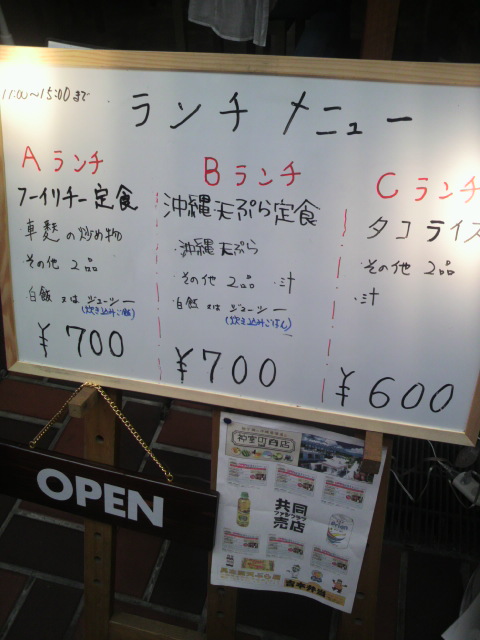 11:00〜15:00まで
ランチメニュー
Aランチ
フーイリチー定食
車麩の炒め物
その他 2品
白飯又はジューシー
(炊き込みご飯)
¥700
Bランチ
沖縄天ぷら定食
沖縄天ぷら
その他 2品 汁
白飯又はジューシー
(炊き込みごはん)
¥700
Cランチ
タコライス
その他 2品
汁
¥600
OPEN
共同
売店